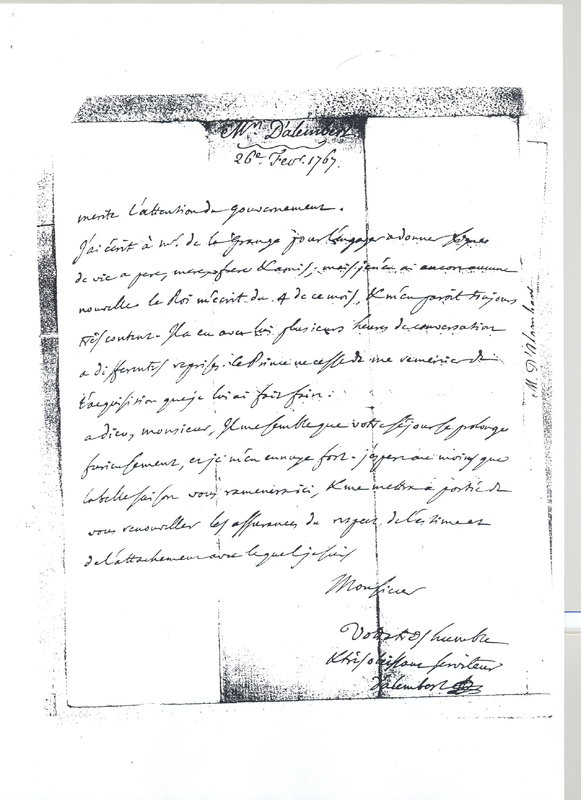 Mr. Dalembert
26e Fevr. 1767.
merite l'attention du gouvernement.
J'ai écrit à mr. de la Grange pour l'engager a donner signes
de vie a pere, mere, frere & amis; mais je n'en ai encor aucune
nouvelle. le Roi m'écrit du 4 de ce mois, & m'en paroît toujours
très content. Il a eu avec lui plusieurs heures de conversation
a differentes reprises; le Prince ne cesse de me remercier de
l'acquisition que je lui ai fait faire.
adieu, monsieur, Il me semble que votre séjour se prolonge
furieusement, et je m'en ennuye fort. j'espere au moins que
la belle saison vous ramenera ici, & me mettra à portée de
vous renouveller les assurances du respect, de l'estime et
de l'attachement avec lequel je suis
Monsieur
Votre très humble
& très obéissant serviteur
Dalembert
M. D'Alembert